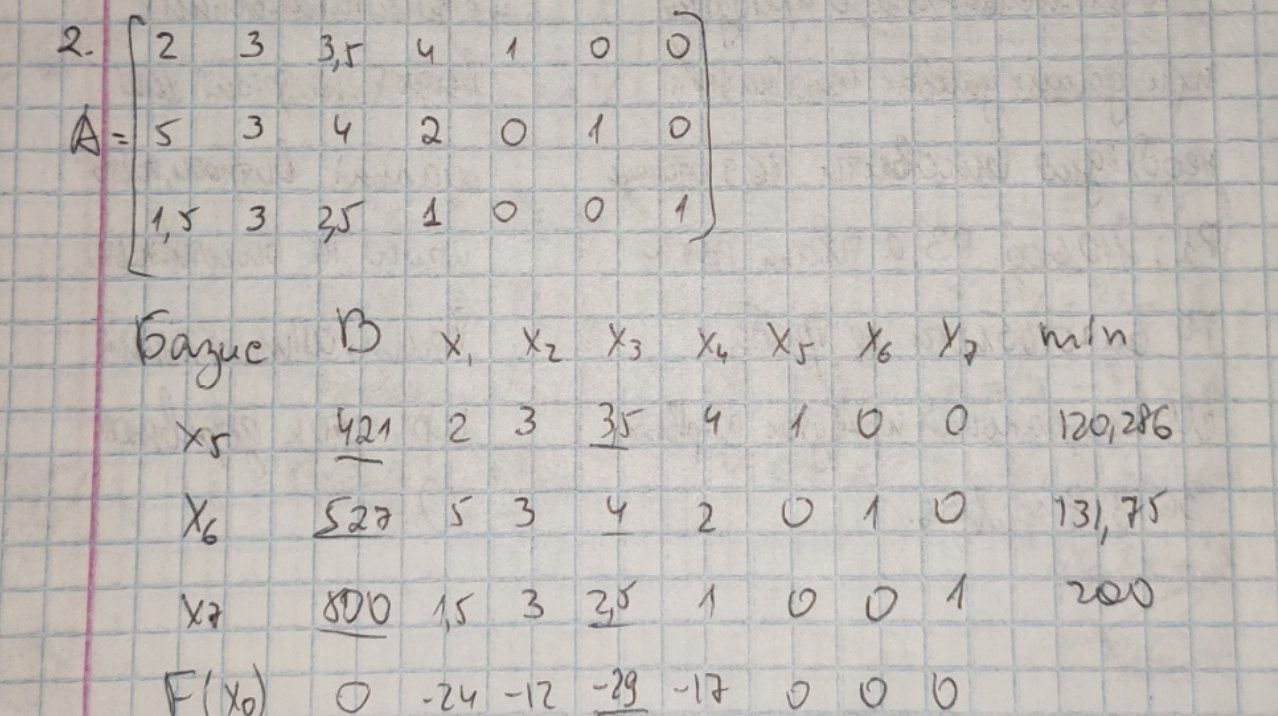 2. 2 3 3,5 4 1 0 0
A= 5 3 4 2 0 1 0
1,5 3 2,5 1 0 0 1
Базис B x₁ x₂ x₃ x₄ x₅ x₆ x₇ min
x₅ 421 2 3 3,5 4 1 0 0 120,286
x₆ 527 5 3 4 2 0 1 0 131,75
x₇ 500 1,5 3 2,5 1 0 0 1 200
F(x₀) 0 -24 -12 -29 -17 0 0 0